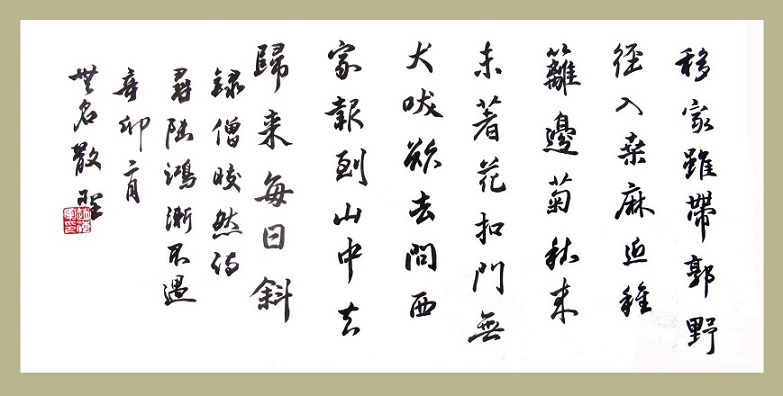 移家雖帶郭野
徑入桑麻近種
籬邊菊秋來
未著花扣門無
犬吠欲去問西
家報到山中去
歸來每日斜
錄僧皎然詩
尋陸鴻漸不遇
辛卯二月
無名散聖